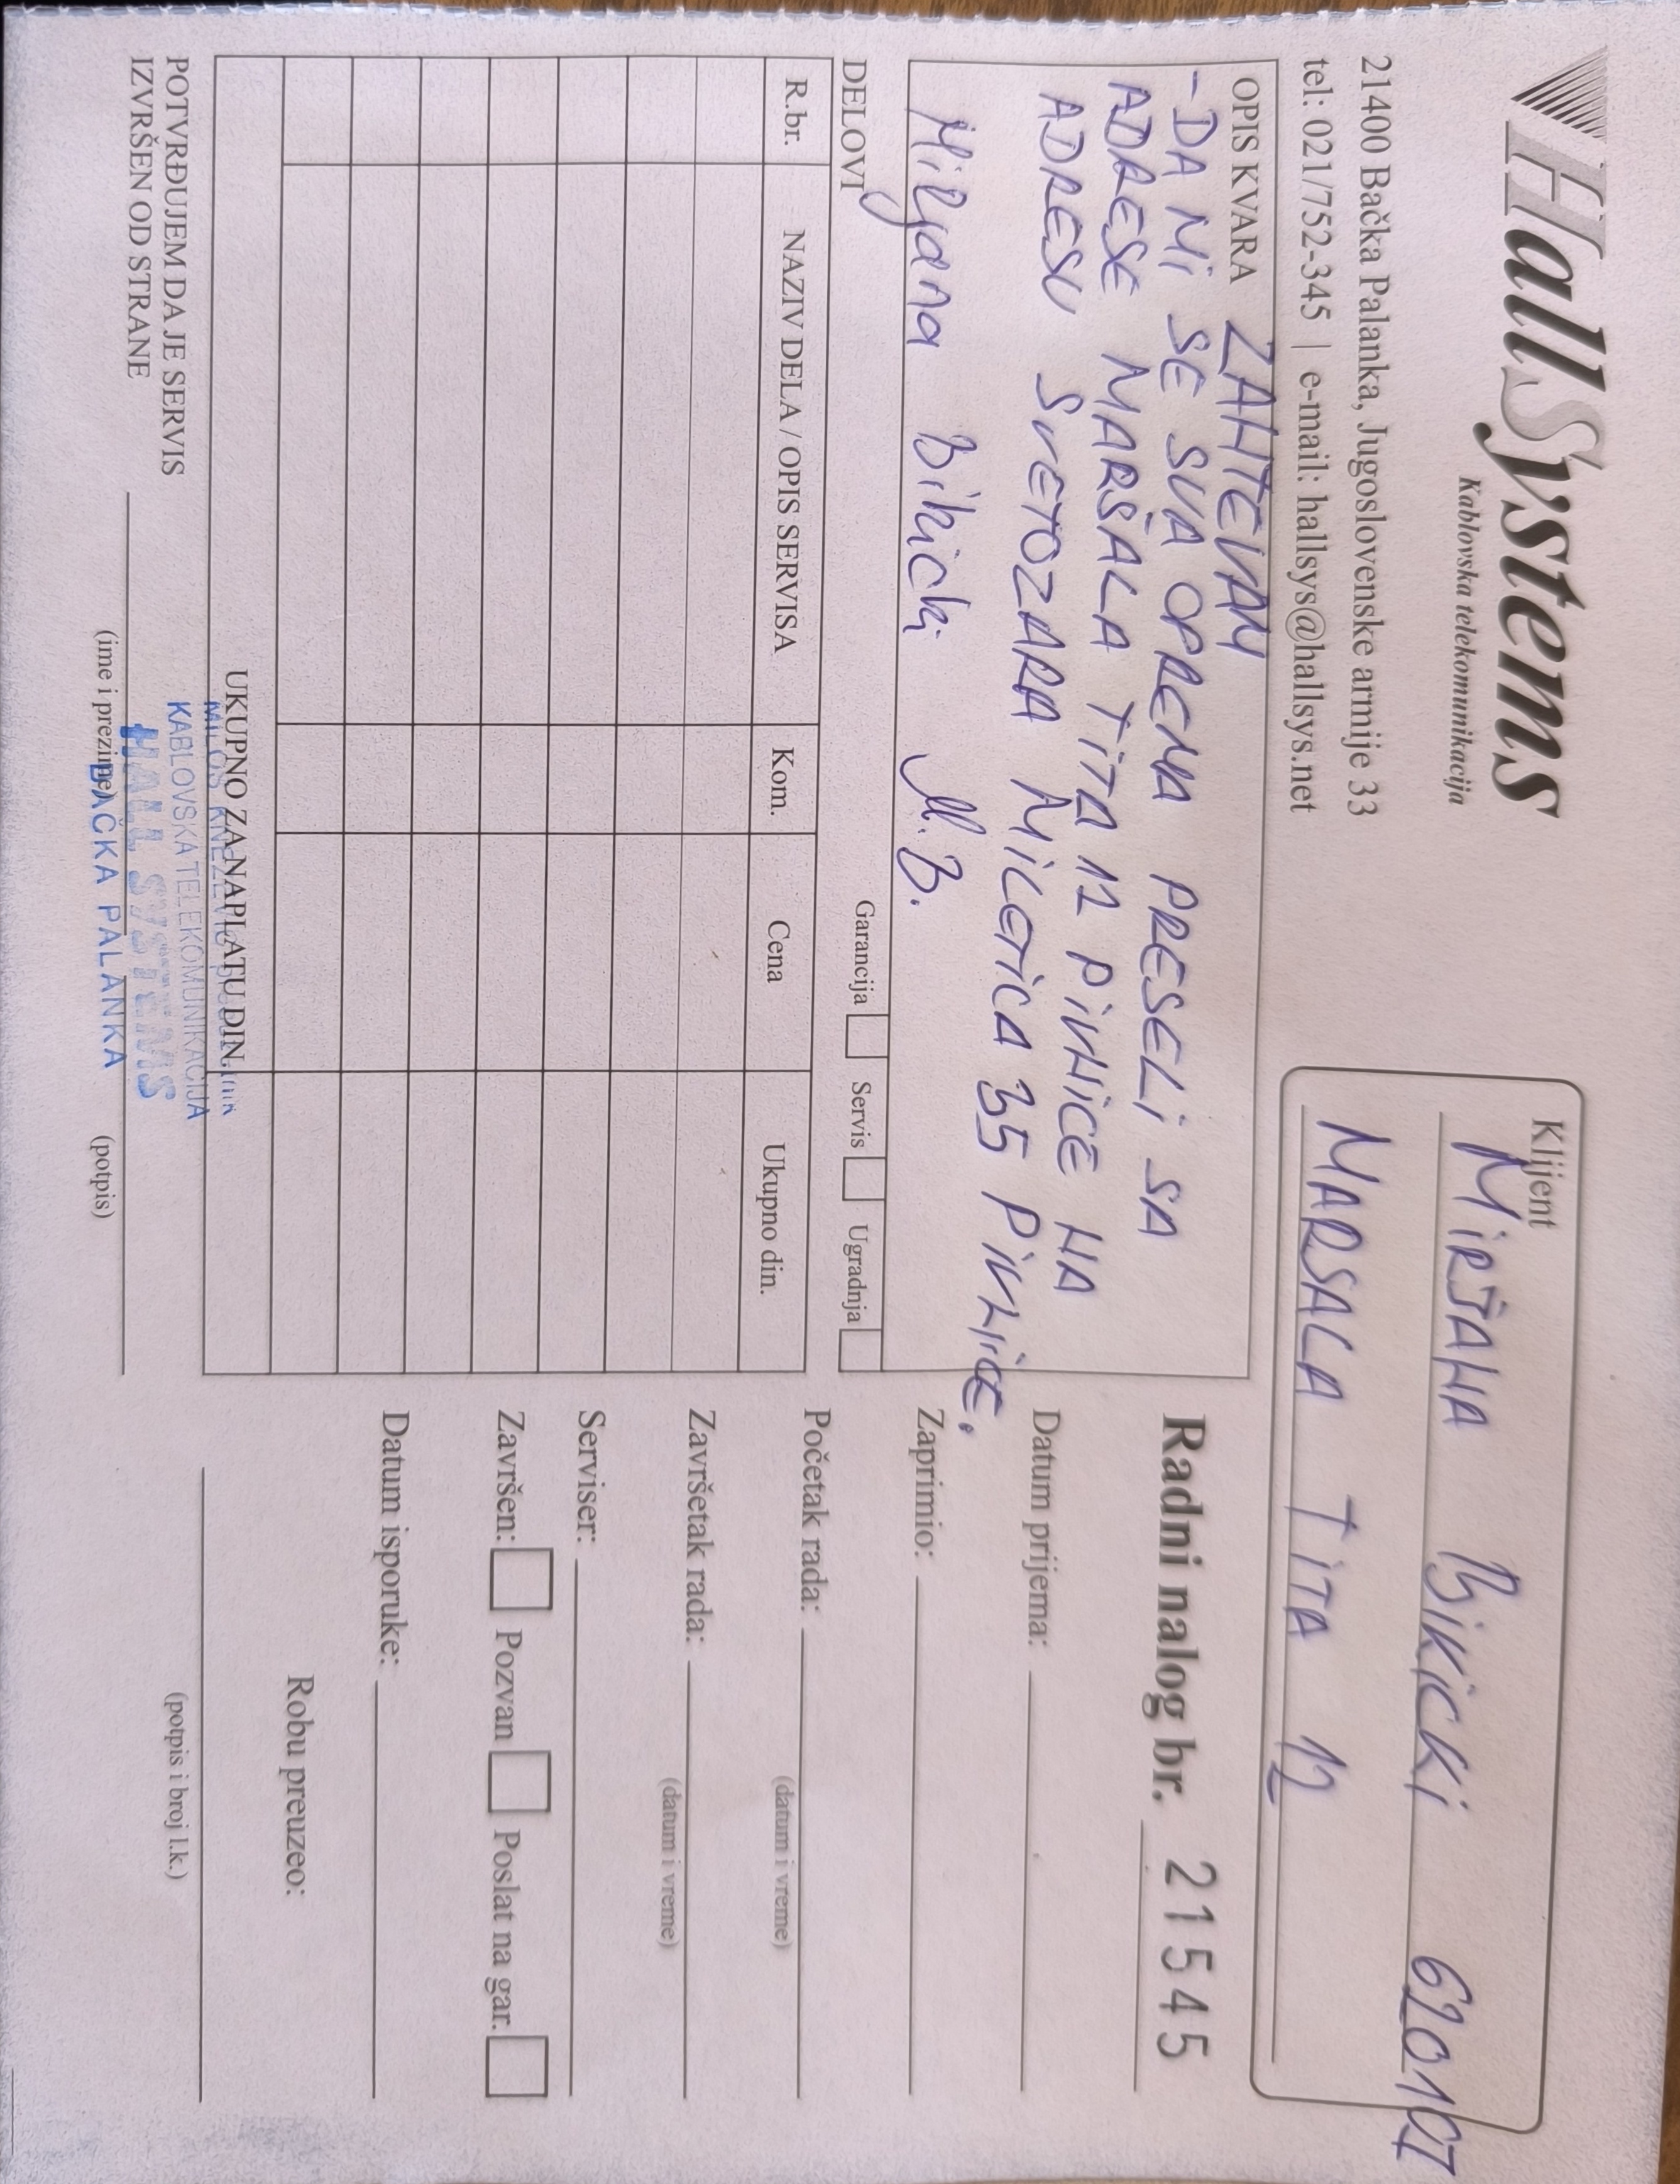 HallSystems
Kablovska telekomunikacija
21400 Bačka Palanka, Jugoslovenske armije 33
tel: 021/752-345 | e-mail: hallsys@hallsys.net
Klijent
BIKICKI
MARSALA TITA 12
Radni nalog br. 21545
OPIS KVARA ZAHTEVAM
- DA Mi SE SVA OPREMA PRESELi SA
ADRESE MARŠALA TiTA 12 PiVNiCE NA
ADRESU SVETOZARA MiLETiCA 35 PiVNiCE.
Miljana Bikicki M.B.
Datum prijema:
Zaprimio:
DELOVI Garancija Servis Ugradnja
R.br. NAZIV DELA / OPIS SERVISA Kom. Cena Ukupno din.
UKUPNO ZA NAPLATU DIN.
Početak rada:
(datum i vreme)
Završetak rada:
(datum i vreme)
Serviser:
Završen: Pozvan Poslat na gar.
Datum isporuke:
Robu preuzeo:
(potpis i broj l.k.)
KABLOVSKA TELEKOMUNIKACIJA
HALL SYSTEMS
BAČKA PALANKA
POTVRĐUJEM DA JE SERVIS
IZVRŠEN OD STRANE
(ime i prezime) (potpis)